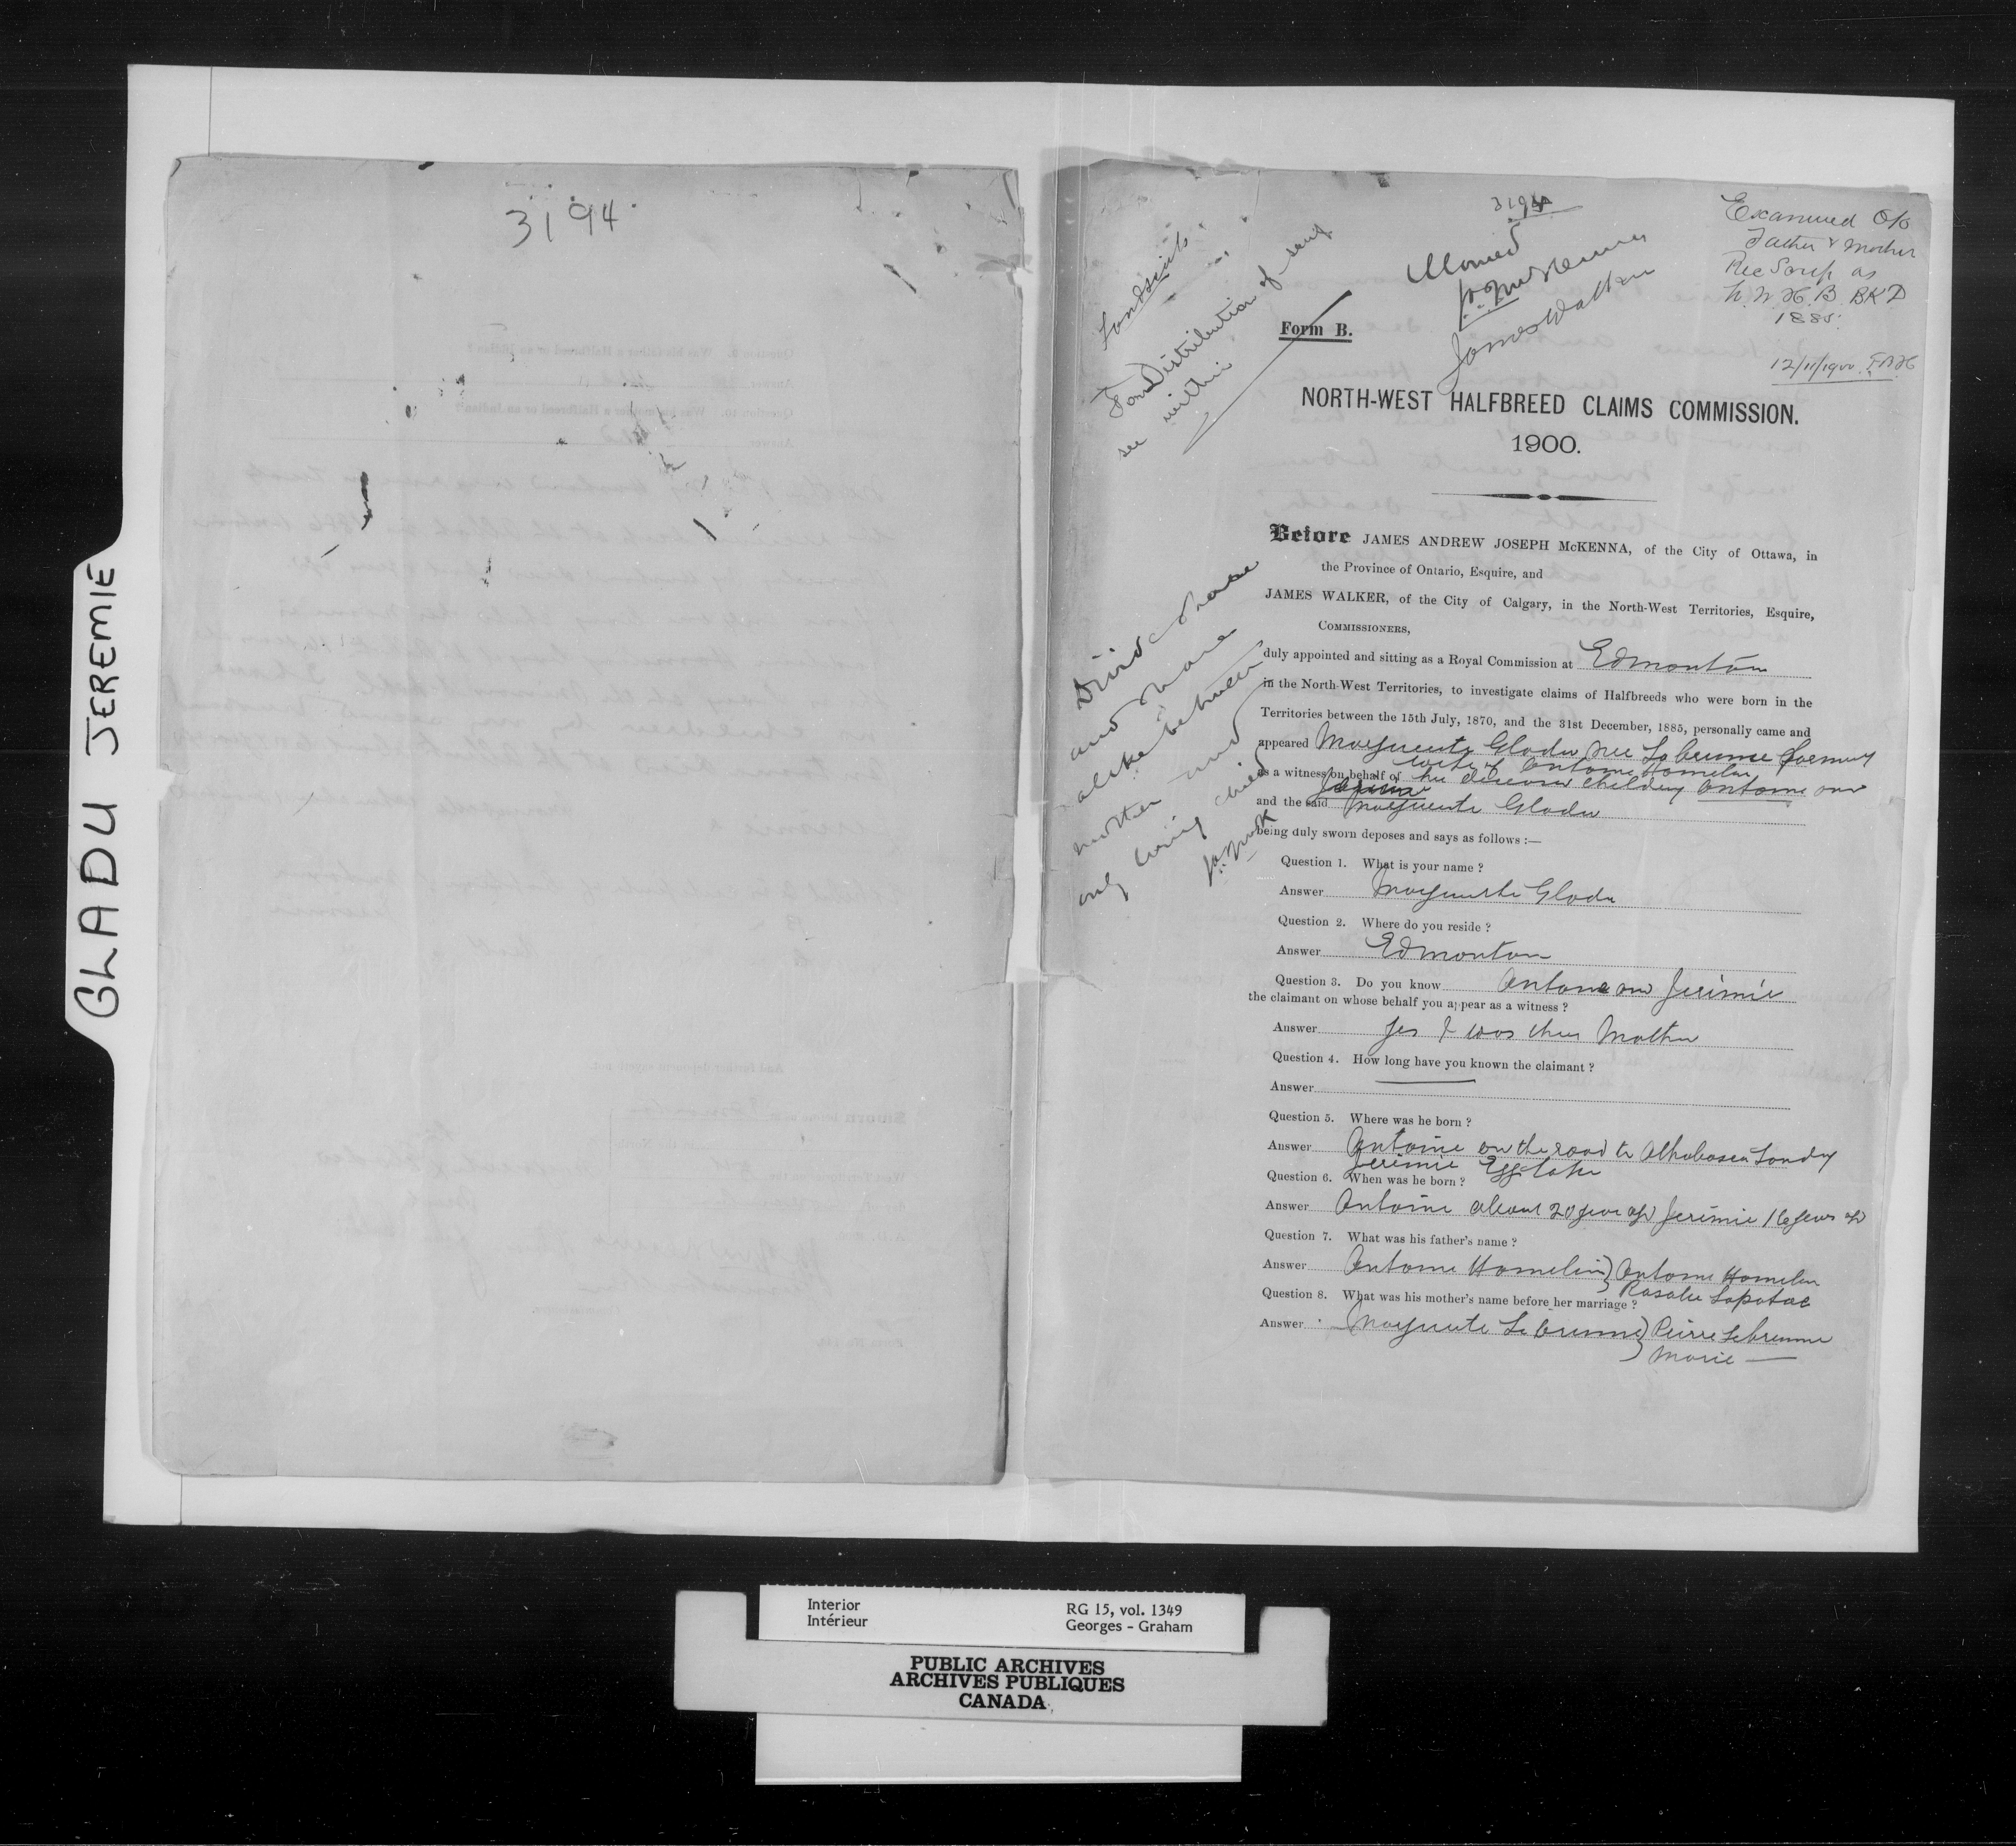 GLADU JEREMIE
3194
3194
Allowed
J.A.J. McKenna
James Walker
Examined O/o
Father & Mother
Rec Scrip as
N.W.H.B. BKD
1885.
12/11/1900.
For Distribution of same
see within
Form B.
NORTH-WEST HALFBREED CLAIMS COMMISSION.
1900.
Divide share
and share
alike between
mother and
only living child
J.A.J. McK
Before JAMES ANDREW JOSEPH McKENNA, of the City of Ottawa, in
the Province of Ontario, Esquire, and
JAMES WALKER, of the City of Calgary, in the North-West Territories, Esquire,
COMMISSIONERS,
duly appointed and sitting as a Royal Commission at Edmonton
in the North-West Territories, to investigate claims of Halfbreeds who were born in the
Territories between the 15th July, 1870, and the 31st December, 1885, personally came and
appeared Marguerite Gladu nee Labrenne formerly
wife of Antoine Hamelin
as a witness on behalf of her deceased children Antoine and
Jerimie
and the said Marguerite Gladu
being duly sworn deposes and says as follows :—
Question 1. What is your name ?
Answer Marguerite Gladu
Question 2. Where do you reside ?
Answer Edmonton
Question 3. Do you know Antoine and Jerimie
the claimant on whose behalf you appear as a witness ?
Answer Yes I was their Mother
Question 4. How long have you known the claimant ?
Answer
Question 5. Where was he born ?
Answer Antoine on the road to Athabasca Landing
Jerimie Egg Lake
Question 6. When was he born ?
Answer Antoine about 20 years ago Jerimie 16 years ago
Question 7. What was his father's name ?
Answer Antoine Hamelin } Antoine Hamelin
Rosalie Lapatac
Question 8. What was his mother's name before her marriage ?
Answer Marguerite Lebrenne } Pierre Lebrenne
Marie —
Interior
Intérieur
RG 15, vol. 1349
Georges - Graham
PUBLIC ARCHIVES
ARCHIVES PUBLIQUES
CANADA